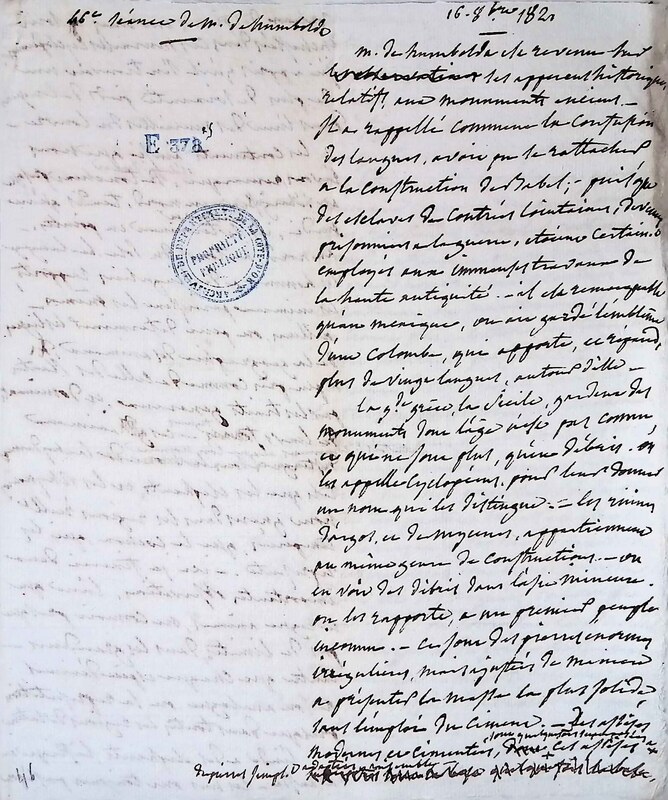 46e séance de M. de humboldt
16. 8bre 1820
E 378 25
ARCHIVES DU DEPARTEMENT DE LA COTE D'OR
PROPRIÉTÉ PUBLIQUE
m. de humboldt est revenu sur
les apperçus historiques,
relatifs aux monuments anciens. —
Il a rappellé comment la Confusion
des langues, avoit pu se rattacher
a la construction de Babel ; —
des esclaves de Contrées lointaines, devenus
prisonniers a la guerre, étoient certain.t
employés aux immenses travaux de
la haute antiquité. — il est remarquable
qu'au mexique, on ait gardé l'emblème
d'une Colombe, qui apporte, et répand,
plus de vingt langues, autour d'elle —
la gde grèce, la Sicile, gardent des
monuments dont l'âge n'est pas connu
et qui ne sont plus, qu'en débris. on
les appelle Cyclopéens, pour leur donner
un nom qui les distingue. — les ruines
d'argos, et de mycenes, appartiennent
au même genre de constructions. — on
en voit des débris dans l'asie mineure.
on les rapporte, a un premier peuple
inconnu. — ce sont des pierres énormes
irrégulieres, mais ajustées de maniere
a présenter la masse la plus solide
sans l'emploi du ciment. — des assises
modernes et cimentées, ces assises
de pierres simpl.
46